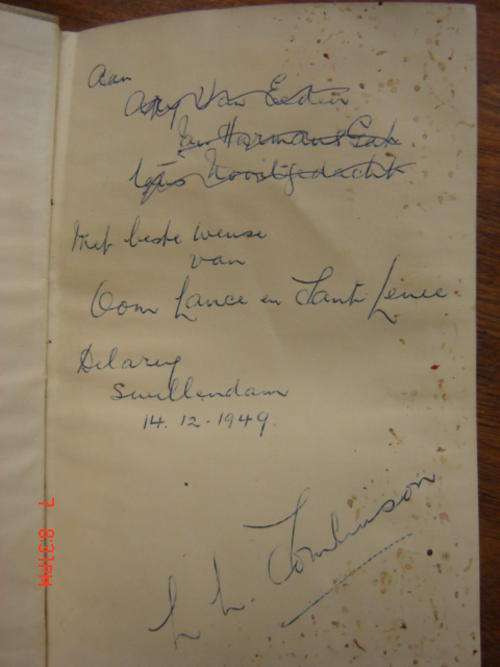 Aan
Van Eeden
Jan Harmansgat
Noortgedacht
Met beste wense
van
Oom Lance en Tant Lenee
Delarey
Swellendam
14.12.1949
L L. Tomlinson
7 8:31PM